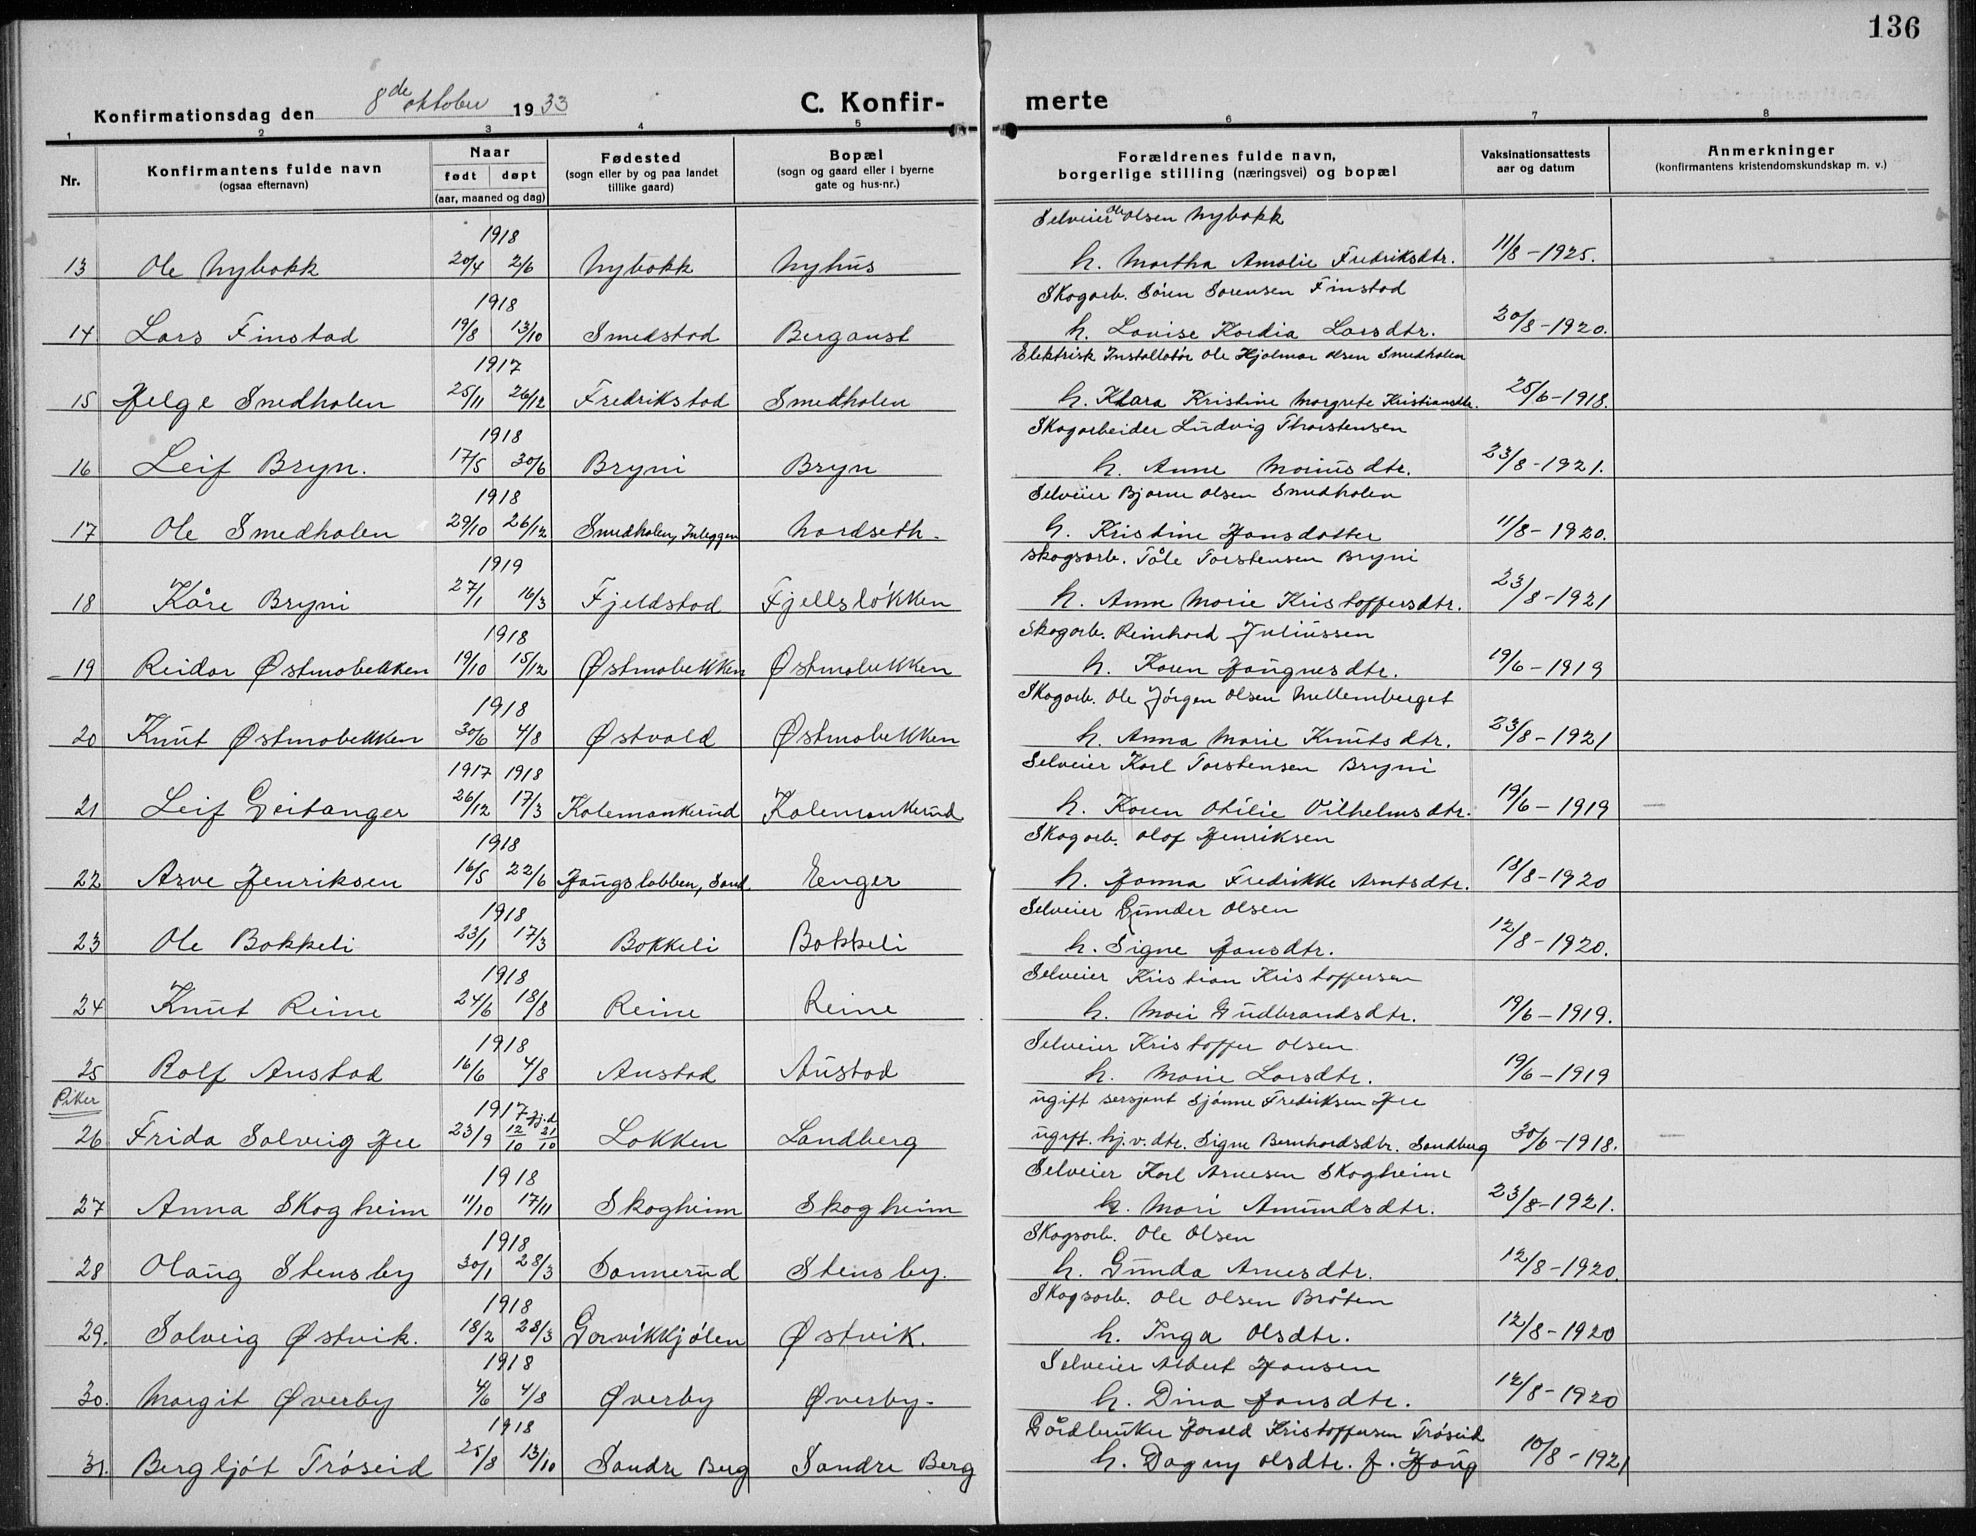 136
Konfirmationsdag den 8de oktober 1933 C. Konfirmerte
1 2 3 4 5 6 7 8
Nr. Konfirmantens fulde navn (ogsaa efternavn) Naar født døpt (aar, maaned og dag) Fødested (sogn eller by og paa landet tillike gaard) Bopæl (sogn og gaard eller i byerne gate og hus-nr.) Forældrenes fulde navn, borgerlige stilling (næringsvei) og bopæl Vaksinationsattests aar og datum Anmerkninger (konfirmantens kristendomskundskap m. v.)
1918 Selveier Ole Olsen Nybakk
13 Ole Nybakk 20/4 2/6 Nybakk Nyhus h. Martha Amalie Fredriksdtr. 11/8-1925.
1918 Skogarb. Søren Sørensen Finstad
14 Lars Finstad 19/8 13/10 Smedstad Bergaust h. Lovise Kordia Larsdtr. 20/8-1920.
1917 Elektrisk Installatør Ole Hjalmar Olsen Smedholen
15 Helge Smedholen 25/11 26/12 Fredrikstad Smedholen h. Klara Kristine Margrete Kristiansdtr. 25/6-1918.
1918 Skogarbeider Ludvig Thorstensen
16 Leif Bryn. 17/5 30/6 Bryni Bryn h. Anne Mariusdtr. 23/8-1921.
1918 Selveier Bjarne Olsen Smedholen
17 Ole Smedholen 29/10 26/12 Smedholen, Inleggen Nordseth. h. Kristine Hansdatter 11/8-1920.
1919 Skogsarb. Tåle Torstensen Bryni
18 Kåre Bryni 27/1 16/3 Fjeldstad Fjellsløkken h. Anne Marie Kristoffersdtr. 23/8-1921
1918 Skogarb. Reinhard Juliussen
19 Reidar Østmobekken 19/10 15/12 Østmobekken Østmobekken h. Karen Haugnesdtr. 19/6-1919
1918 Skogarb. Ole Jørgen Olsen Mellemberget
20 Knut Østmobekken 30/6 4/8 Østvold Østmobekken h. Anna Marie Knutsdtr. 23/8-1921
1917 1918 Selveier Karl Torstensen Bryni
21 Leif Geitanger 26/12 17/3 Kolemonkerud Kolemonkerud h. Karen Otilie Vilhelmsdtr. 19/6-1919
1918 Skogarb. Olaf Henriksen
22 Arve Henriksen 16/5 22/6 Haugslabben, Sand Enger h. Hanna Fredrikke Arntsdtr. 18/8-1920
1918 Selveier Gunder Olsen
23 Ole Bakkeli 23/1 17/3 Bakkeli Bakkeli h. Signe Hansdtr. 12/8-1920.
1918 Selveier Kristian Kristoffersen
24 Knut Reine 24/6 18/8 Reine Reine h. Mari Gudbrandsdtr. 19/6-1919.
1918 Selveier Kristoffer Olsen
25 Rolf Austad 16/6 4/8 Austad Austad h. Marie Larsdtr. 19/6-1919
Piker 1917 hj.d. ugift sersjant Sjønne Fredriksen Hee
26 Frida Solveig Hee 23/9 12/10 21/10 Løkken Sandberg ugift. hj.v. dtr. Signe Bernhardsdtr. Sandberg 30/6-1918.
1918 Selveier Karl Arnesen Skogheim
27 Anna Skogheim 11/10 17/11 Skogheim Skogheim h. Mari Amundsdtr. 23/8-1921.
1918 Skogsarb. Ole Olsen
28 Olaug Stensby 30/1 28/3 Sannerud Stensby. h. Gunda Arnesdtr. 12/8-1920.
1918 Skogsarb. Ole Olsen Bråten
29. Solveig Østvik. 18/2 28/3 Gorvikkjølen Østvik. h. Inga Olsdtr. 12/8-1920
1918 Selveier Albert Hansen
30. Margit Øverby 4/6 4/8 Øverby Øverby. h. Dina Hansdtr. 12/8-1920
1918 Gårdbruker Harald Kristoffersen Trøseid
31. Bergljót Trøseid 25/8 13/10 Søndre Berg Søndre Berg h. Dagny Olsdtr. f. Haug 10/8-1921